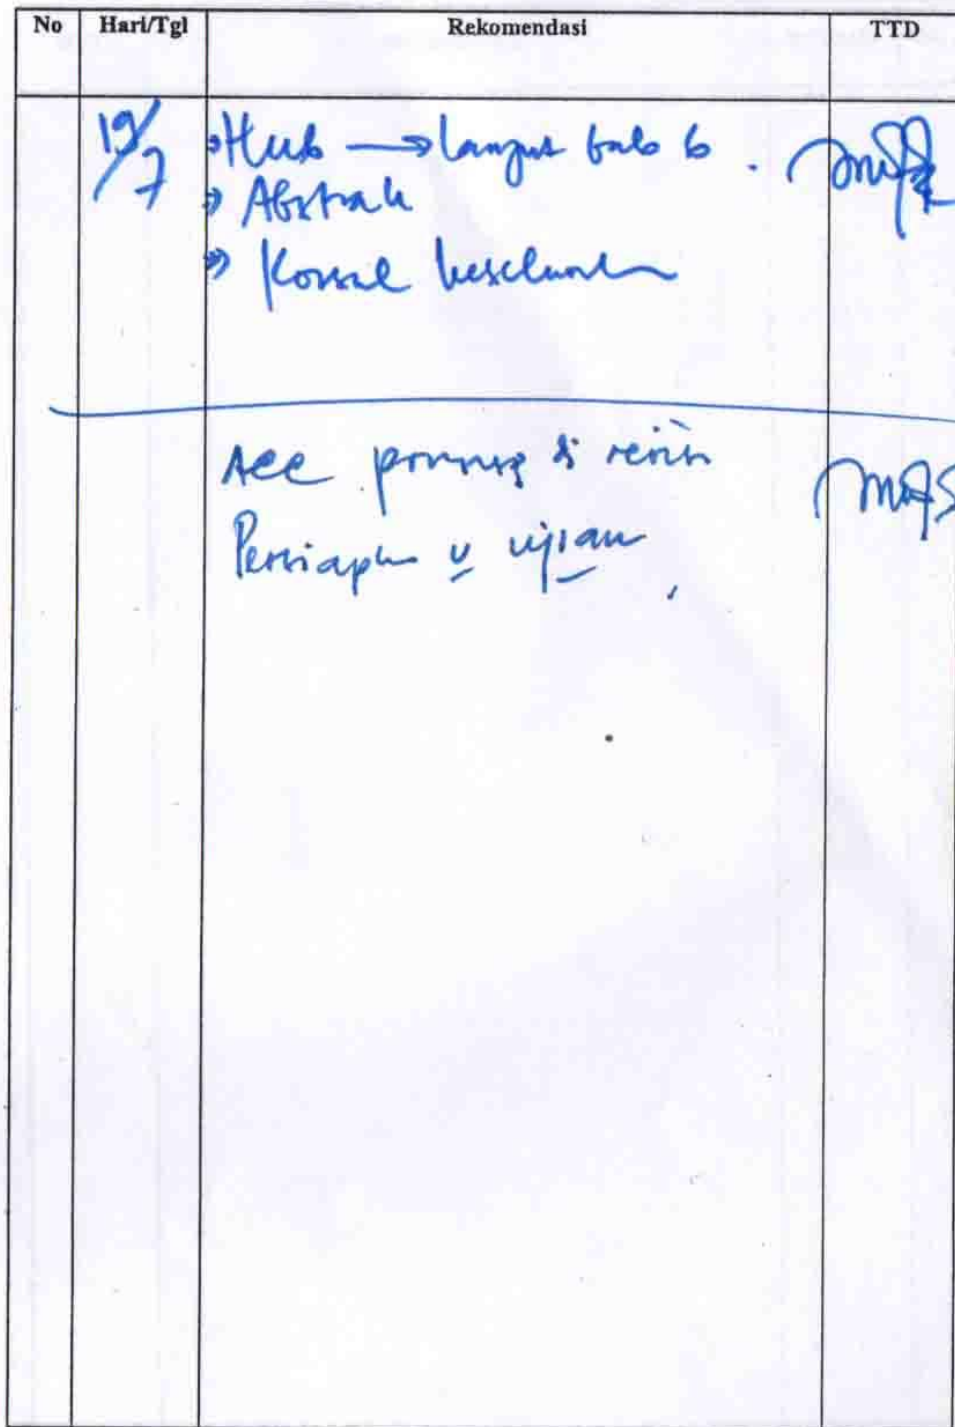 No Hari/Tgl Rekomendasi TTD
19/7 Hub → lanjut bab 6
Abstrak
Konsul keseluruhan
Acc
Persiapan u ujian